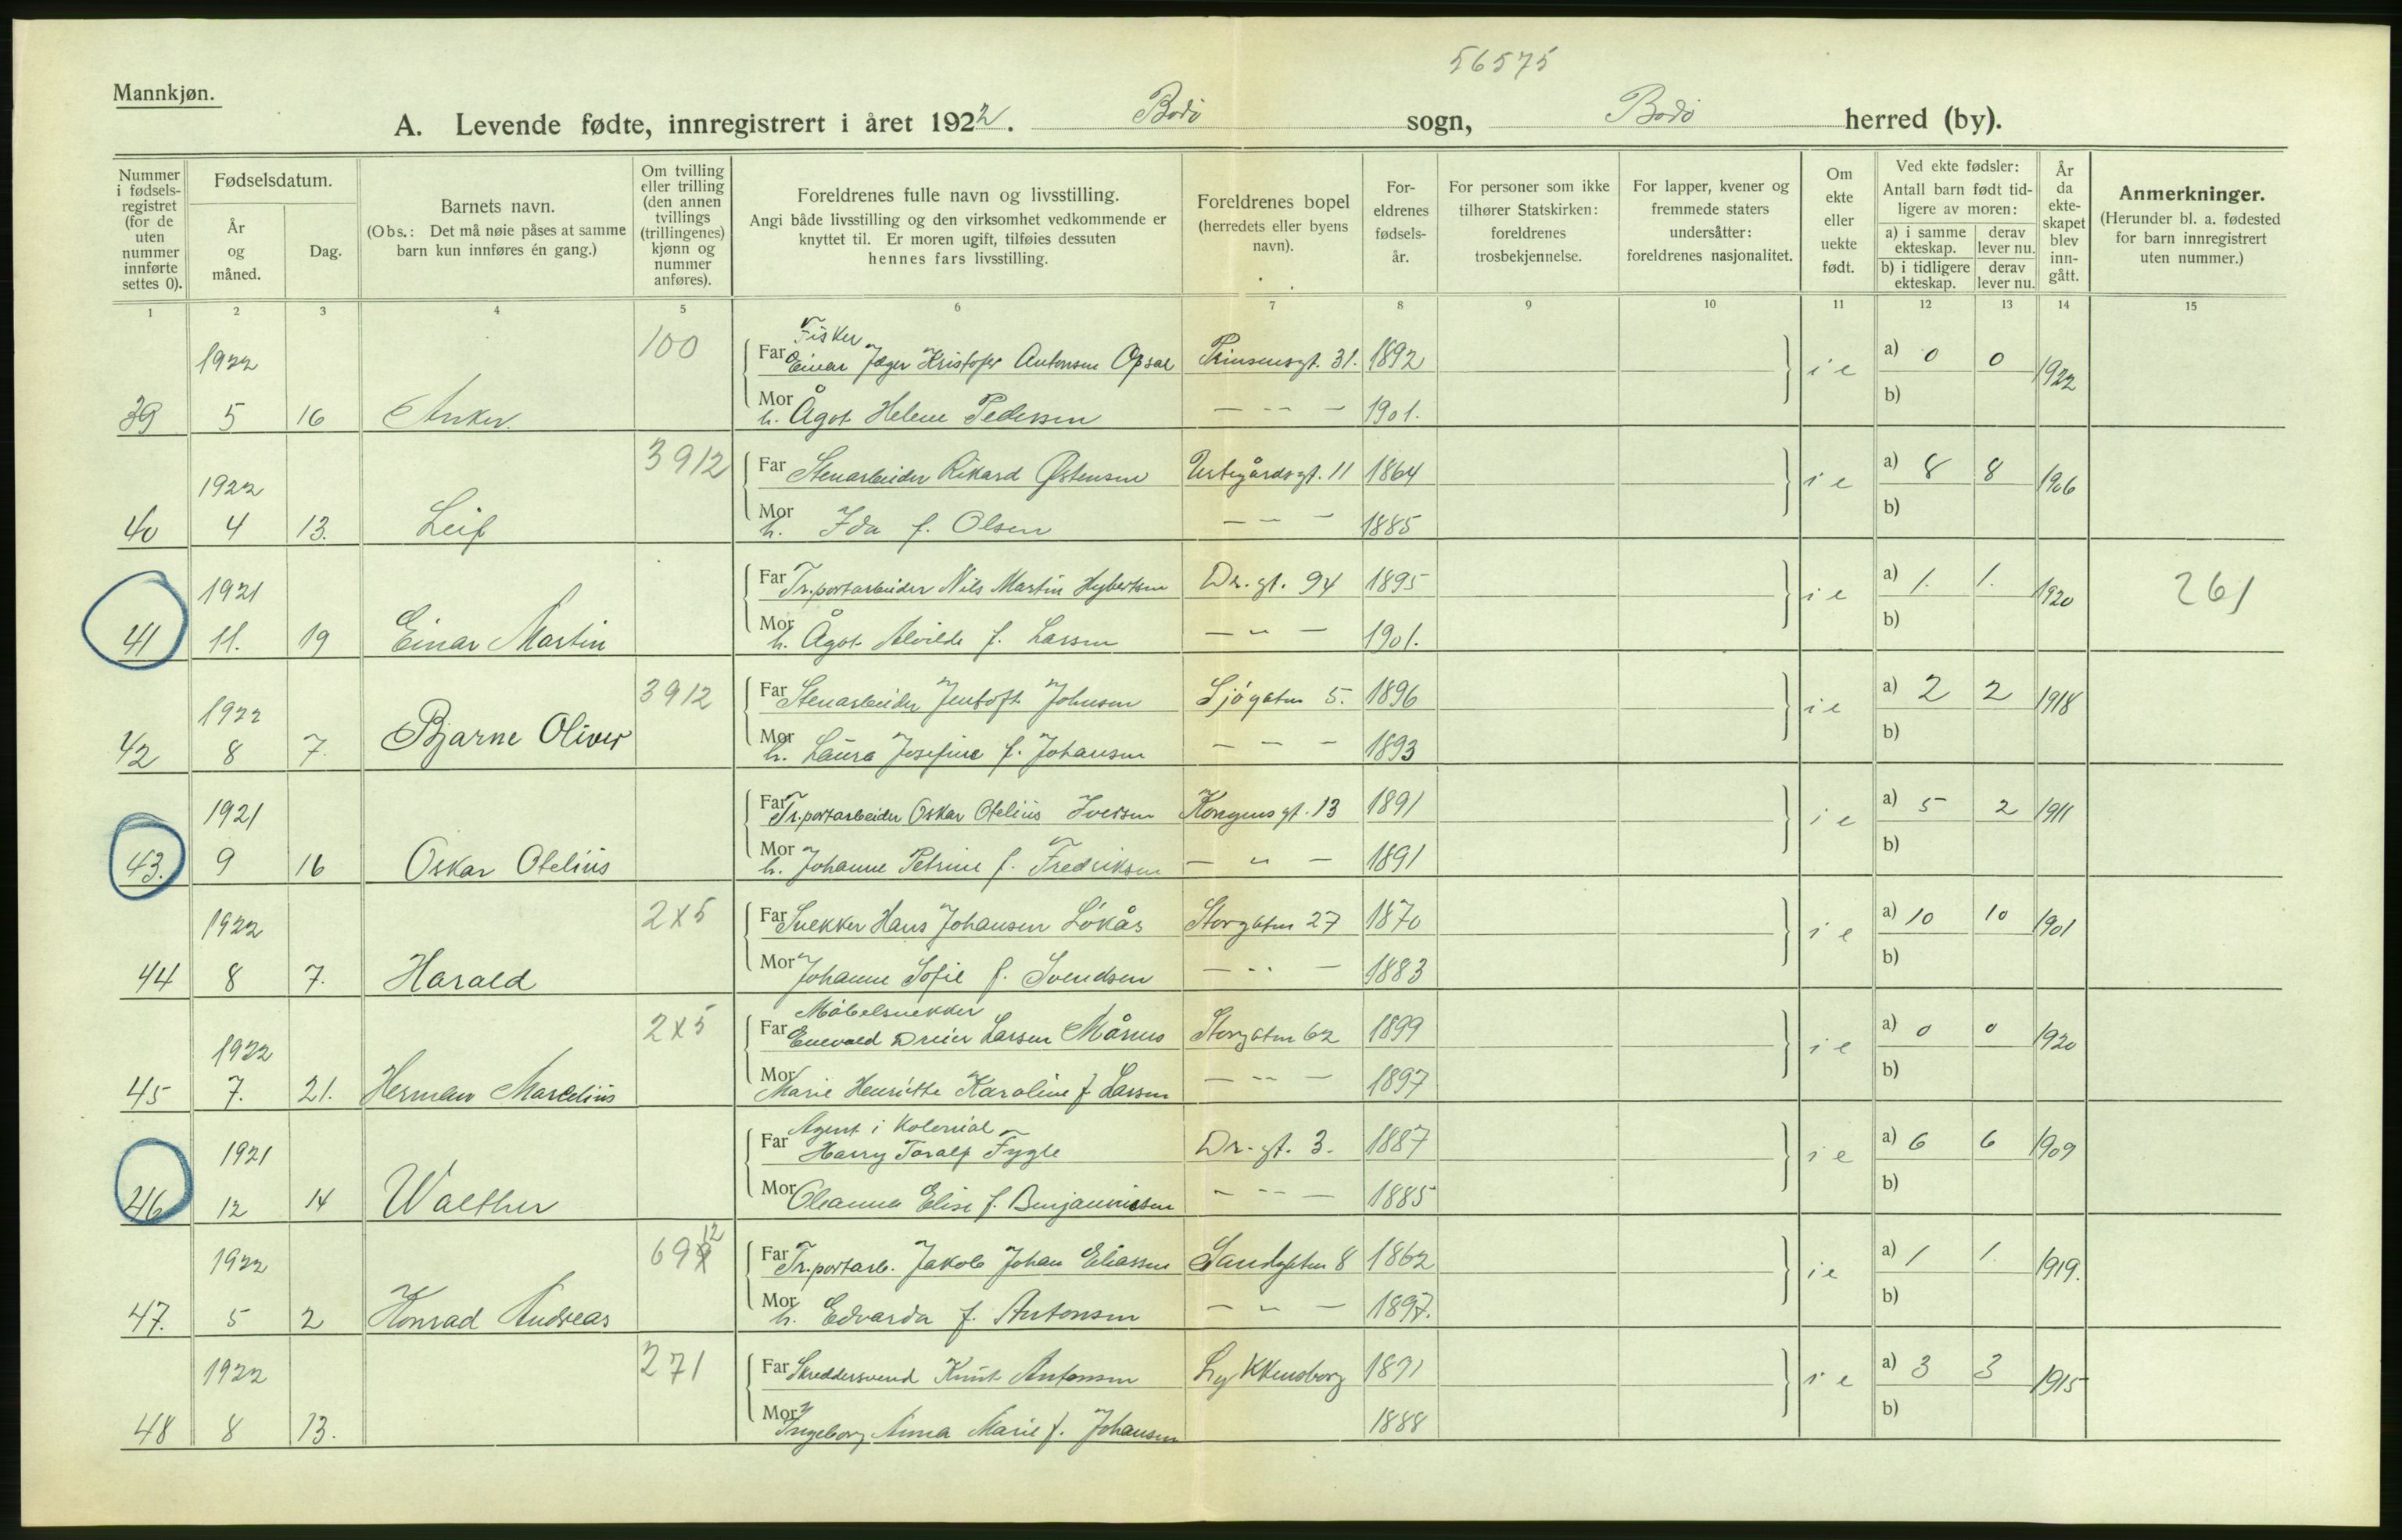 56575
Mannkjøn.
A. Levende fødte, innregistrert i året 1922. Bodø sogn, Bodø herred (by).
Nummer i fødselsregistret (for de uten nummer innførte settes 0).
Fødselsdatum.
År og måned.
Dag.
Barnets navn.
(Obs.: Det må nøie påses at samme barn kun innføres én gang.)
Om tvilling eller trilling (den annen tvillings (trillingenes) kjønn og nummer anføres).
Foreldrenes fulle navn og livsstilling.
Angi både livsstilling og den virksomhet vedkommende er knyttet til. Er moren ugift, tilføies dessuten hennes fars livsstilling.
Foreldrenes bopel (herredets eller byens navn).
Foreldrenes fødselsår.
For personer som ikke tilhører Statskirken: foreldrenes trosbekjennelse.
For lapper, kvener og fremmede staters undersåtter: foreldrenes nasjonalitet.
Om ekte eller uekte født.
Ved ekte fødsler: Antall barn født tidligere av moren:
a) i samme ekteskap. derav lever nu.
b) i tidligere ekteskap. derav lever nu.
År da ekteskapet blev inngått.
Anmerkninger.
(Herunder bl. a. fødested for barn innregistrert uten nummer.)
1 2 3 4 5 6 7 8 9 10 11 12 13 14 15
Fisker
1922 100 Far Einar Jæger Kristofer Antonsen Opsal Prinsensgt. 31. 1892 i e a) 0 0 1922
39 5 16 Anker. Mor h. Ågot Helene Pedersen — -- — 1901. b)
1922 3912 Far Stenarbeider Rikard Østensen Urtegårdsgt. 11 1864 i e a) 8 8 1906
40 4 13. Leif Mor h. Ida f. Olsen — — — 1885 b)
1921 Far Tr.portarbeider Nils Martin Hybertsen Dr. gt. 94 1895 i e a) 1. 1. 1920 261
41 11. 19 Einar Martin Mor h. Ågot Alvilde f. Larsen — " — 1901. b)
1922 3912 Far Stenarbeider Jentoft Johnsen Sjøgaten 5. 1896 i e a) 2 2 1918
42 8 7. Bjarne Oliver Mor h. Laura Josefine f. Johansen — — — 1893 b)
1921 Far Tr.portarbeider Oskar Otelius Iversen Kongensgt. 13 1891 i e a) 5 2 1911
43. 9 16 Oskar Otelius Mor h. Johanne Petrine f. Fredriksen — " — 1891 b)
1922 2x5 Far Snekker Hans Johansen Løkås Storgaten 27 1870 i e a) 10 10 1901
44 8 7. Harald Mor Johanne Sofie f. Svendsen — -- — 1883 b)
Møbelsnekker
1922 2x5 Far Enevald Dreier Larsen Mårnes Storgaten 62 1899 i e a) 0 0 1920
45 7. 21. Herman Marelius Mor Marie Henriette Karoline f Larsen — -- — 1897 b)
Agent i Kolonial
1921 Far Harry Toralf Fygle Dr. gt. 3. 1887 i e a) 6 6 1909
46 12 14 Walther Mor Oleanna Elise f. Benjaminsen — -- — 1885 b)
12
1922 699 Far Tr.portarb. Jakob Johan Eliassen Sandgaten 8 1862 i e a) 1 1. 1919.
47. 5 2 Konrad Andreas Mor h. Edvarda f. Antonsen — " — 1897. b)
1922 271 Far Skreddersvend Knut Antonsen Lykkensborg 1891 i e a) 3 3 1915
48 8 13. Mor Ingeborg Anna Marie f. Johansen 1888 b)